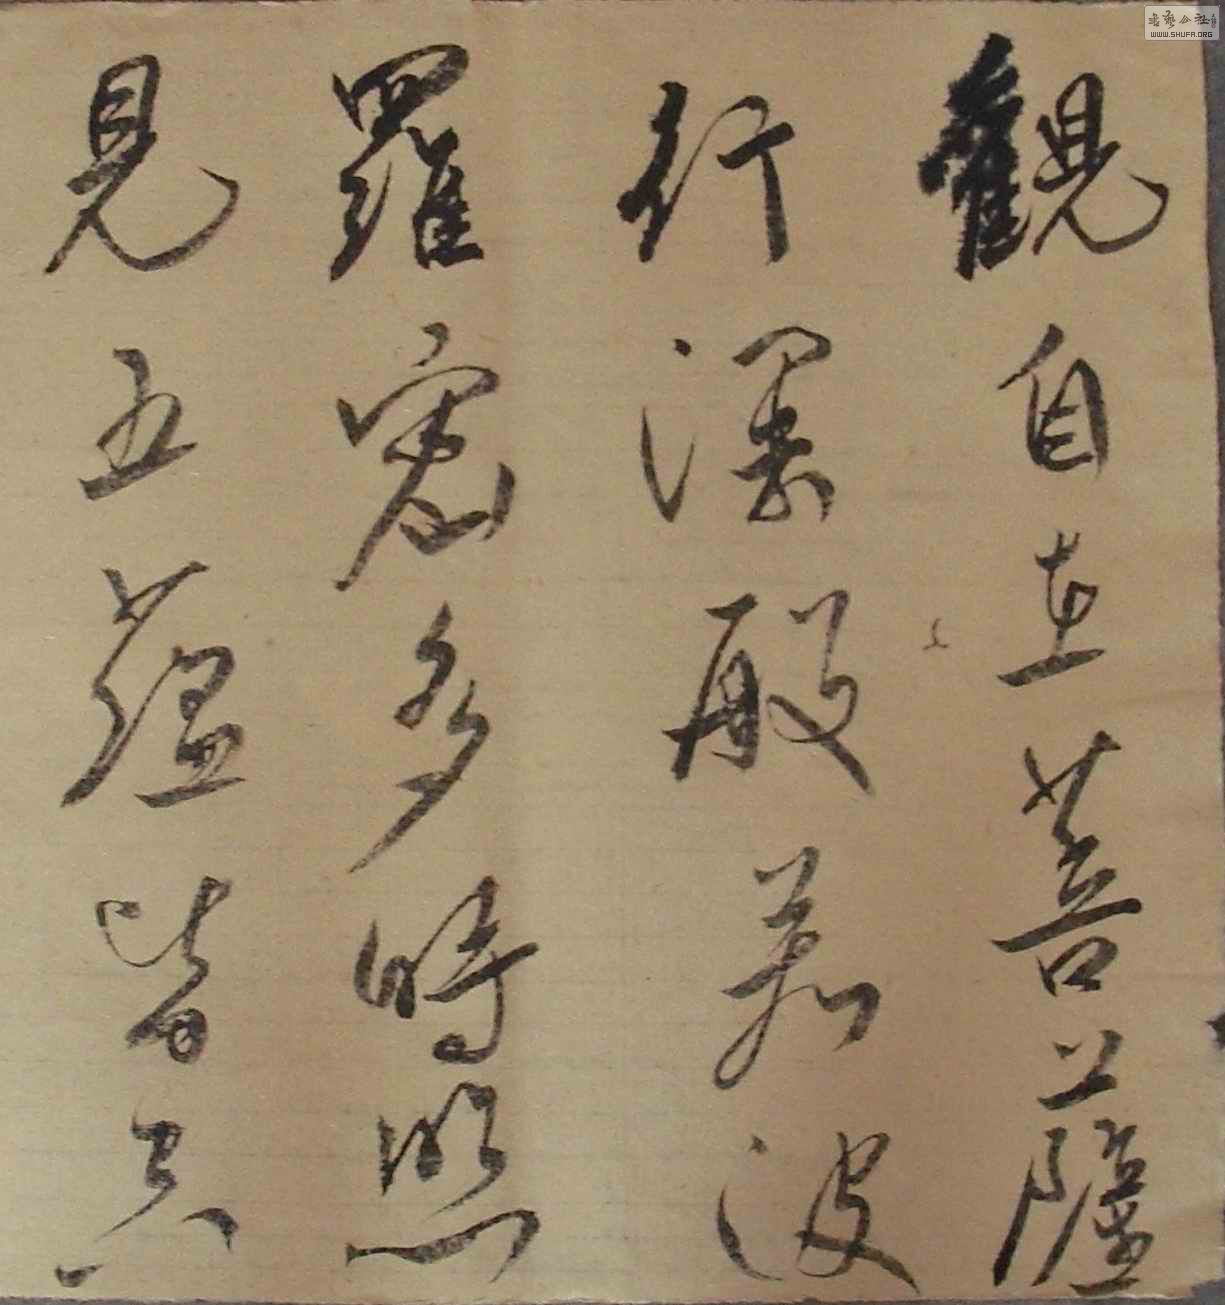 觀自在菩薩
行深般若波
羅密多時照
見五蘊皆空
书艺公社
WWW.SHUFA.ORG